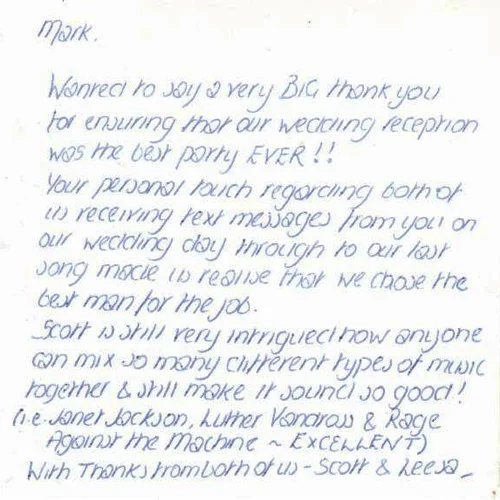 Mark.
Wanted to say a very BIG thank you
for ensuring that our wedding reception
was the best party EVER!!
Your personal touch regarding both of
us receiving text messages from you on
our wedding day through to our last
song made us realise that we chose the
best man for the job.
Scott is still very intrigued how anyone
can mix so many different types of music
together & still make it sound so good!
(i.e. Janet Jackson, Luther Vandross & Rage
Against the Machine ~ EXCELLENT)
With Thanks from both of us - Scott & Leesa